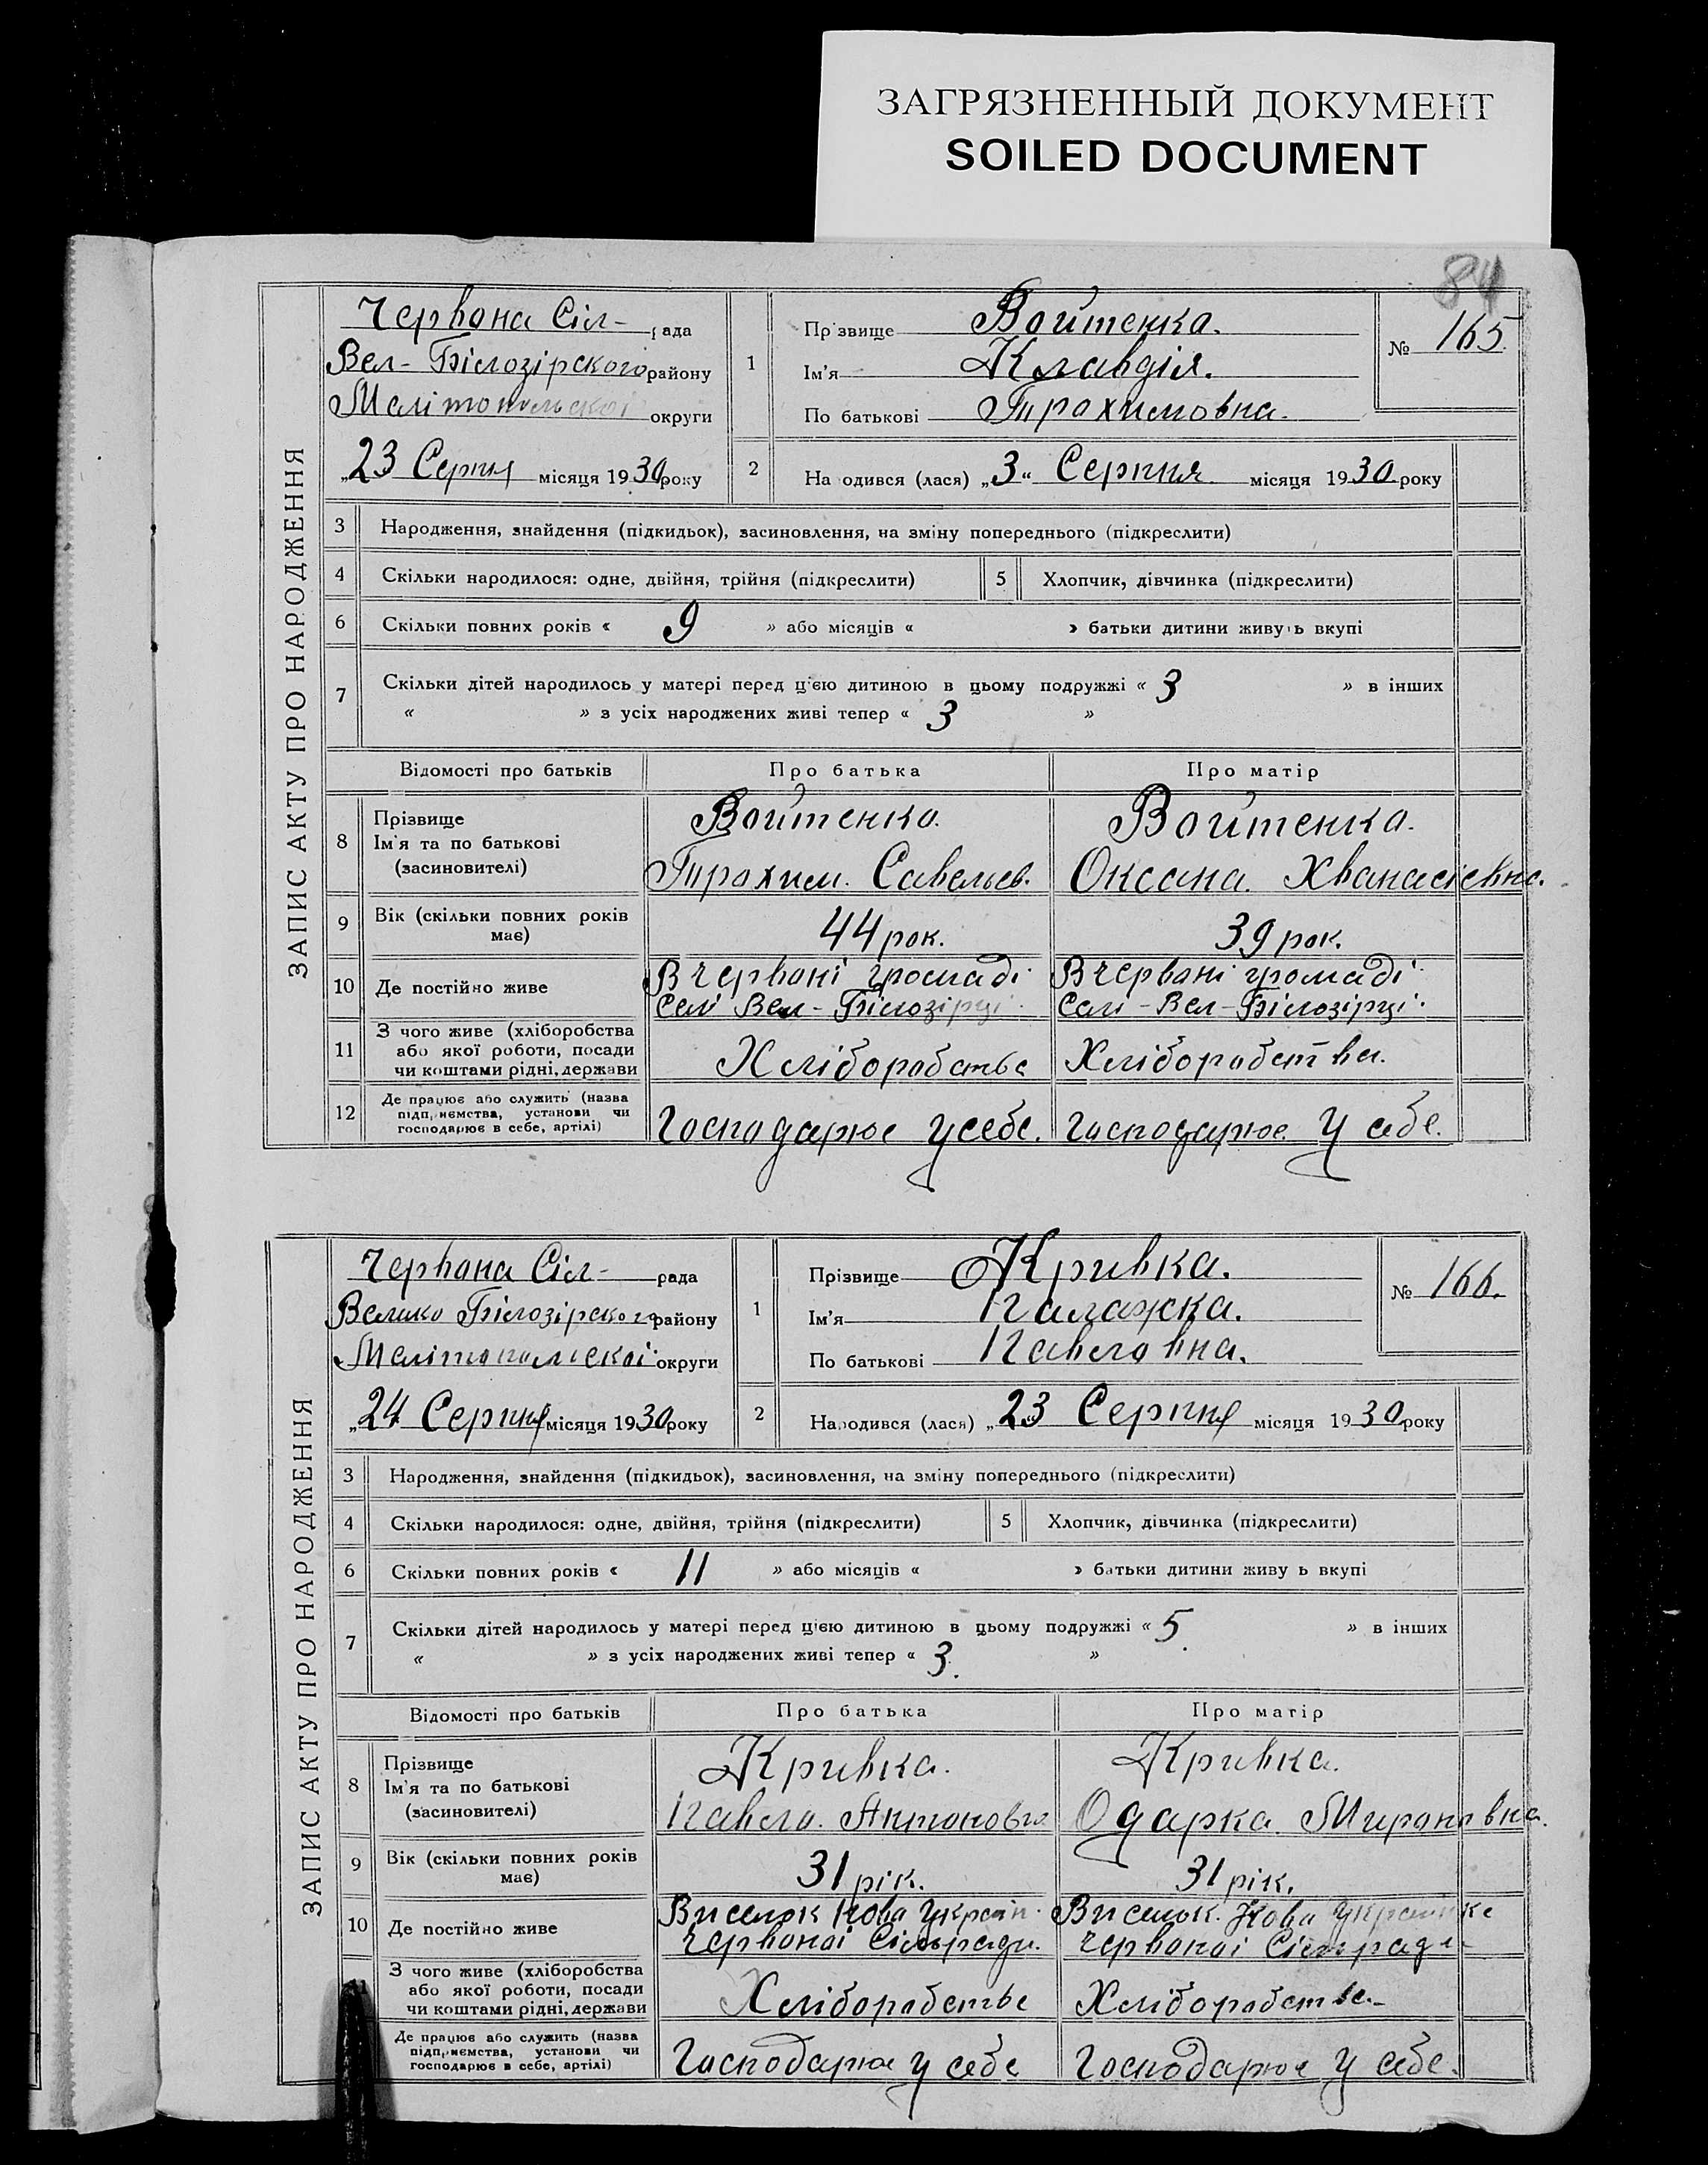 ЗАГРЯЗНЕННЫЙ ДОКУМЕНТ
SOILED DOCUMENT
84
ЗАПИС АКТУ ПРО НАРОДЖЕННЯ
Червона Сіл- рада
Вел-Білозірского району
Мелітопольскої округи
„23 Серпня місяця 1930 року
1
Прізвище Войтенка.
Ім'я Клавдія.
По батькові Трахимовна.
№ 165.
2
На одився (лася) „3“ Серпня місяця 1930 року
3 Народження, знайдення (підкидьок), засиновлення, на зміну попереднього (підкреслити)
4 Скільки народилося: одне, двійня, трійня (підкреслити) 5 Хлопчик, дівчинка (підкреслити)
6 Скільки повних років « 9 » або місяців « » батьки дитини живуь вкупі
7 Скільки дітей народилось у матері перед цією дитиною в цьому подружжі « 3 » в інших
« » з усіх народжених живі тепер « 3 »
Відомості про батьків Про батька Про матір
8 Прізвище
Ім'я та по батькові
(засновителі)
Войтенко. Войтенка.
Трахим. Савельев. Оксана. Хванасієвна.
9 Вік (скільки повних років має) 44 рок. 39 рок.
10 Де постійно живе
В червоні громаді В червоні громаді
Селі Вел-Білозірці Селі-Вел-Білозірці
11 З чого живе (хліборобства
або якої роботи, посади
чи коштами рідні, держави
Хліборобство Хліборобства.
12 Де працює або служить (назва
підприємства, установи чи
господарює в себе, артілі)
Господарює у себе. Господарює у себе.
ЗАПИС АКТУ ПРО НАРОДЖЕННЯ
Червона Сіл- рада
Велико Білозірского району
Мелітопольскої округи
„24 Серпня місяця 1930 року
1
Прізвище Кривка.
Ім'я Палажка.
По батькові Павловна.
№ 166.
2
Народився (лася) „23 Серпня місяця 1930 року
3 Народження, знайдення (підкидьок), засиновлення, на зміну попереднього (підкреслити)
4 Скільки народилося: одне, двійня, трійня (підкреслити) 5 Хлопчик, дівчинка (підкреслити)
6 Скільки повних років « 11 » або місяців « » батьки дитини живу ь вкупі
7 Скільки дітей народилось у матері перед цією дитиною в цьому подружжі « 5 » в інших
« » з усіх народжених живі тепер « 3. »
Відомості про батьків Про батька Про матір
8 Прізвище
Ім'я та по батькові
(засиновителі)
Кривка. Кривка.
Павло. Антонович Одарка. Мироновна.
9 Вік (скільки повних років має) 31 рік. 31 рік.
10 Де постійно живе
Виселок Нова Україн. Виселок. Нова Українке
Червоної Сільради. Червоної Сільради
11 З чого живе (хліборобства
або якої роботи, посади
чи коштами рідні, держави
Хліборобство Хліборобство.
Де працює або служить (назва
підприємства, установи чи
господарює в себе, артілі)
Господарює у себе Господарює у себе.